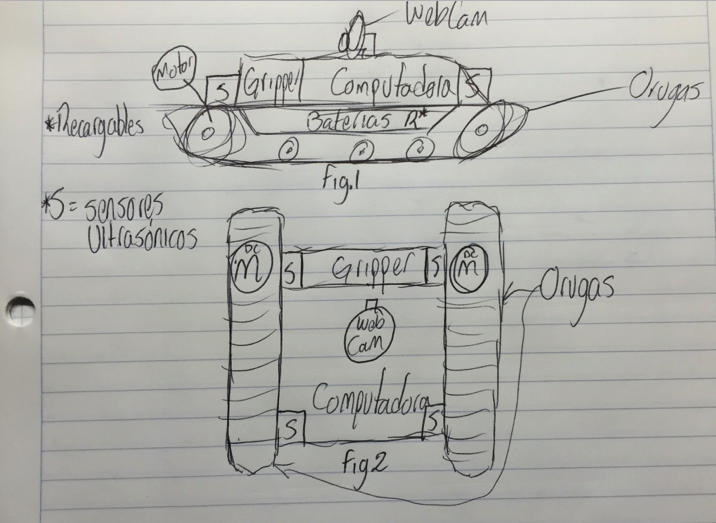 WebCam
Motor
S
Gripper
Computadora
S
Orugas
*Recargables
Baterias R*
Fig.1
*S = sensores
Ultrasónicos
DC
M
S
Gripper
S
DC
M
Orugas
Web
Cam
Computadora
S
S
Fig2